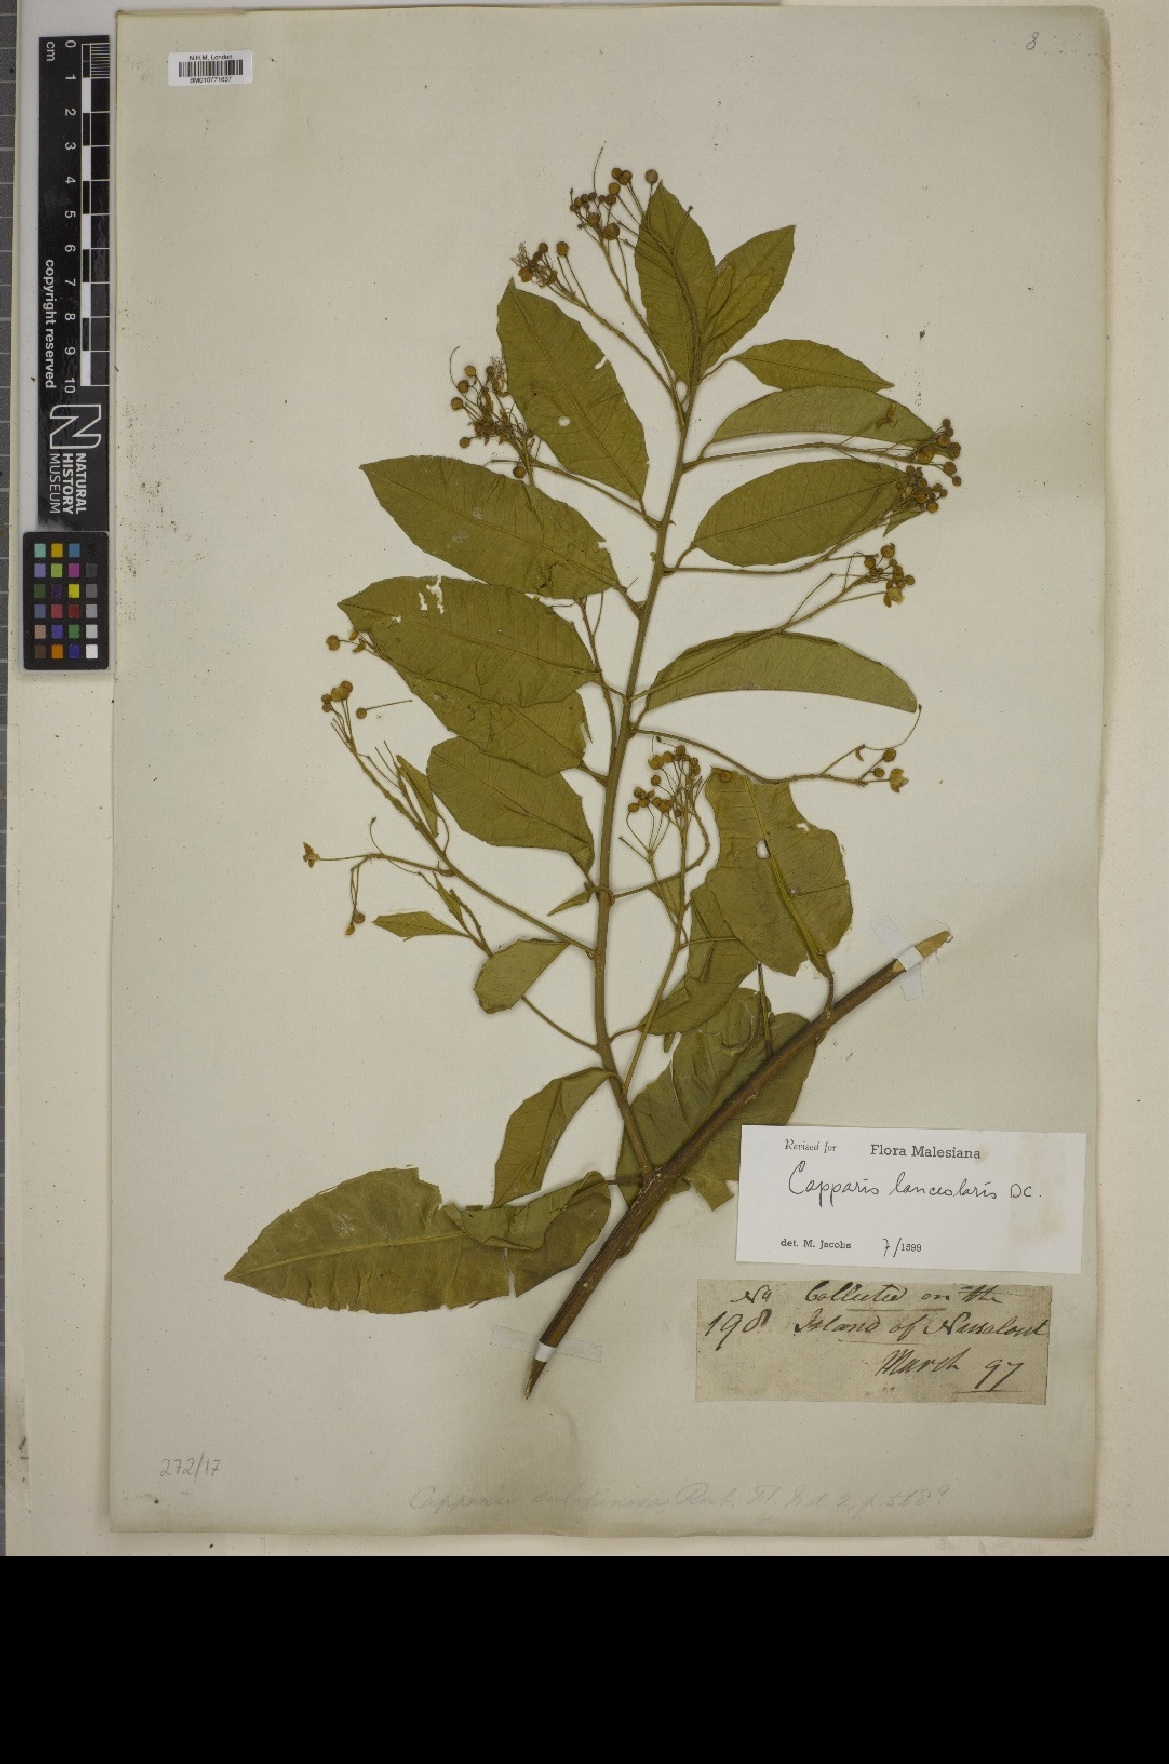 8
N.H.M. London
cm 0 1 2 3 4 5 6 7 8 9 10
copyright reserved
NATURAL
HISTORY
MUSEUM
Revised for Flora Malesiana
Capparis lanceolaris DC.
det. M. Jacobs 7/1999
No Collected on the
198 Island of
March 97
272/17
Capparis Roxb. Fl. Ind. 2, p. 568?